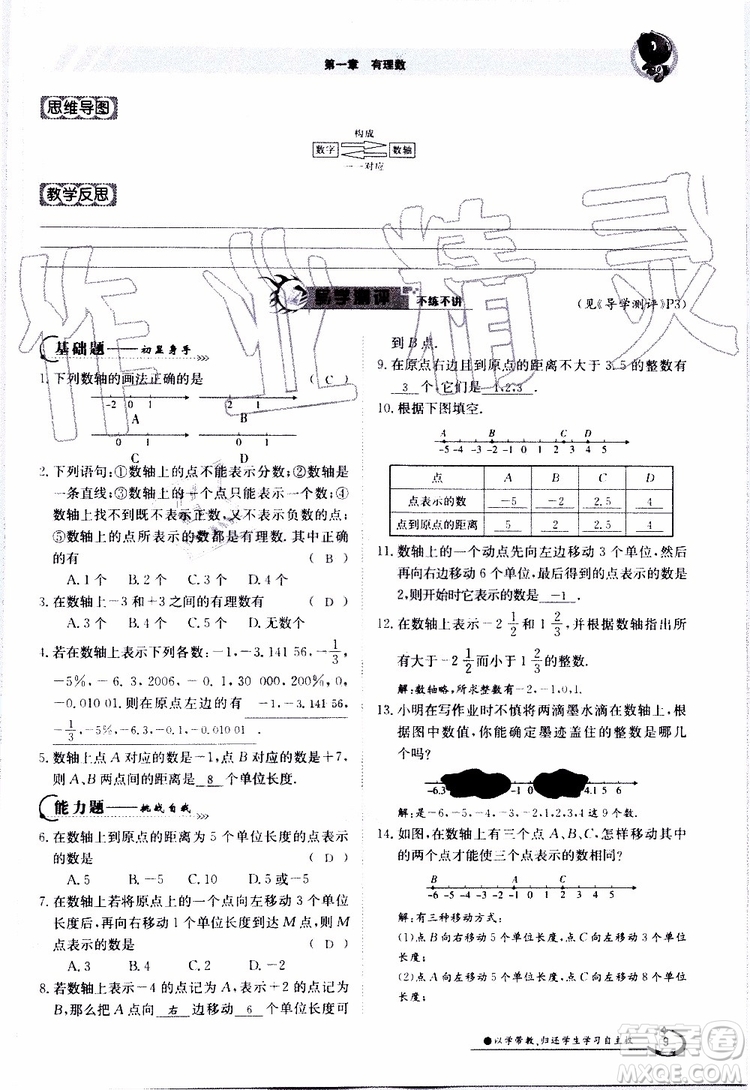 第一章 有理数
思维导图
构成
数字 数轴
一一对应
教学反思
导学测评 不练不讲
(见《导学测评》P3)
基础题——初显身手
1. 下列数轴的画法正确的是 ( C )
-2 0 1
-2 0 1
A B
0 1
0 1
C D
2. 下列语句:①数轴上的点不能表示分数;②数轴是
一条直线;③数轴上的一个点只能表示一个数;④
数轴上找不到既不表示正数,又不表示负数的点;
⑤数轴上的点所表示的数都是有理数.其中正确
的有 ( B )
A. 1个 B. 2个 C. 3个 D. 4个
3. 在数轴上-3和+3之间的有理数有 ( D )
A. 3个 B. 4个 C. 5个 D. 无数个
4. 若在数轴上表示下列各数:-1,-3.141 56,-1/3,
-5%,-6.3,2006,-0.1,30 000,200%,0,
-0.010 01,则在原点左边的有 -1,-3.141 56,
-1/3,-5%,-6.3,-0.1,-0.010 01
5. 数轴上点A对应的数是-1,点B对应的数是+7,
则A、B两点间的距离是 8 个单位长度.
能力题——挑战自我
6. 在数轴上到原点的距离为5个单位长度的点表示
的数是 ( D )
A. 5 B. -5 C. 10 D. 5或-5
7. 在数轴上若将原点上的一个点向左移动3个单位
长度后,再向右移动1个单位长度到达M点,则M
点表示的数是 ( D )
A. 4 B. 3 C. 2 D. -2
8. 在数轴上表示-4的点记为A,表示+2的点记为
B,那么把A点向 右 边移动 6 个单位长度可
到B点.
9. 在原点右边且与原点的距离不大于3.5的整数有
3 个,它们是 1,2,3 .
10. 根据下图填空.
A B C D
-5 -4 -3 -2 -1 0 1 2 3 4 5
点 A B C D
点表示的数 -5 -2 2.5 4
点到原点的距离 5 2 2.5 4
11. 数轴上的一个动点先向左边移动3个单位,然后
再向右边移动6个单位,这个点表示的数是
2,则开始时它表示的数是 -1 .
12. 在数轴上表示-2 1/2和1 2/3,并根据数轴指出所
有大于-2 1/2而小于1 2/3的整数.
解:数轴略,所求整数有-2,-1,0,1.
13. 小明在写作业时不慎将两滴墨水滴在数轴上,根
据图中数值,你能确定墨迹盖住的整数是哪几
个吗?
-6.3 -1 0 4.1
解:是-6,-5,-4,-3,-2,1,2,3,4这9个数.
14. 如图,在数轴上有三个点A、B、C,怎样移动其中
的两个点才能使三个点表示的数相同?
B A C
-6 -5 -4 -3 -2 -1 0 1 2 3 4 5 6
解:有三种移动方式:
(1)点B向右移动5个单位长度,点C向左移动3个单位
长度;
(2)点A向左移动5个单位长度,点C向左移动8个单位
●以学带教,归还学生学习自主权
9
作业精灵
答案圈
MXQE.COM